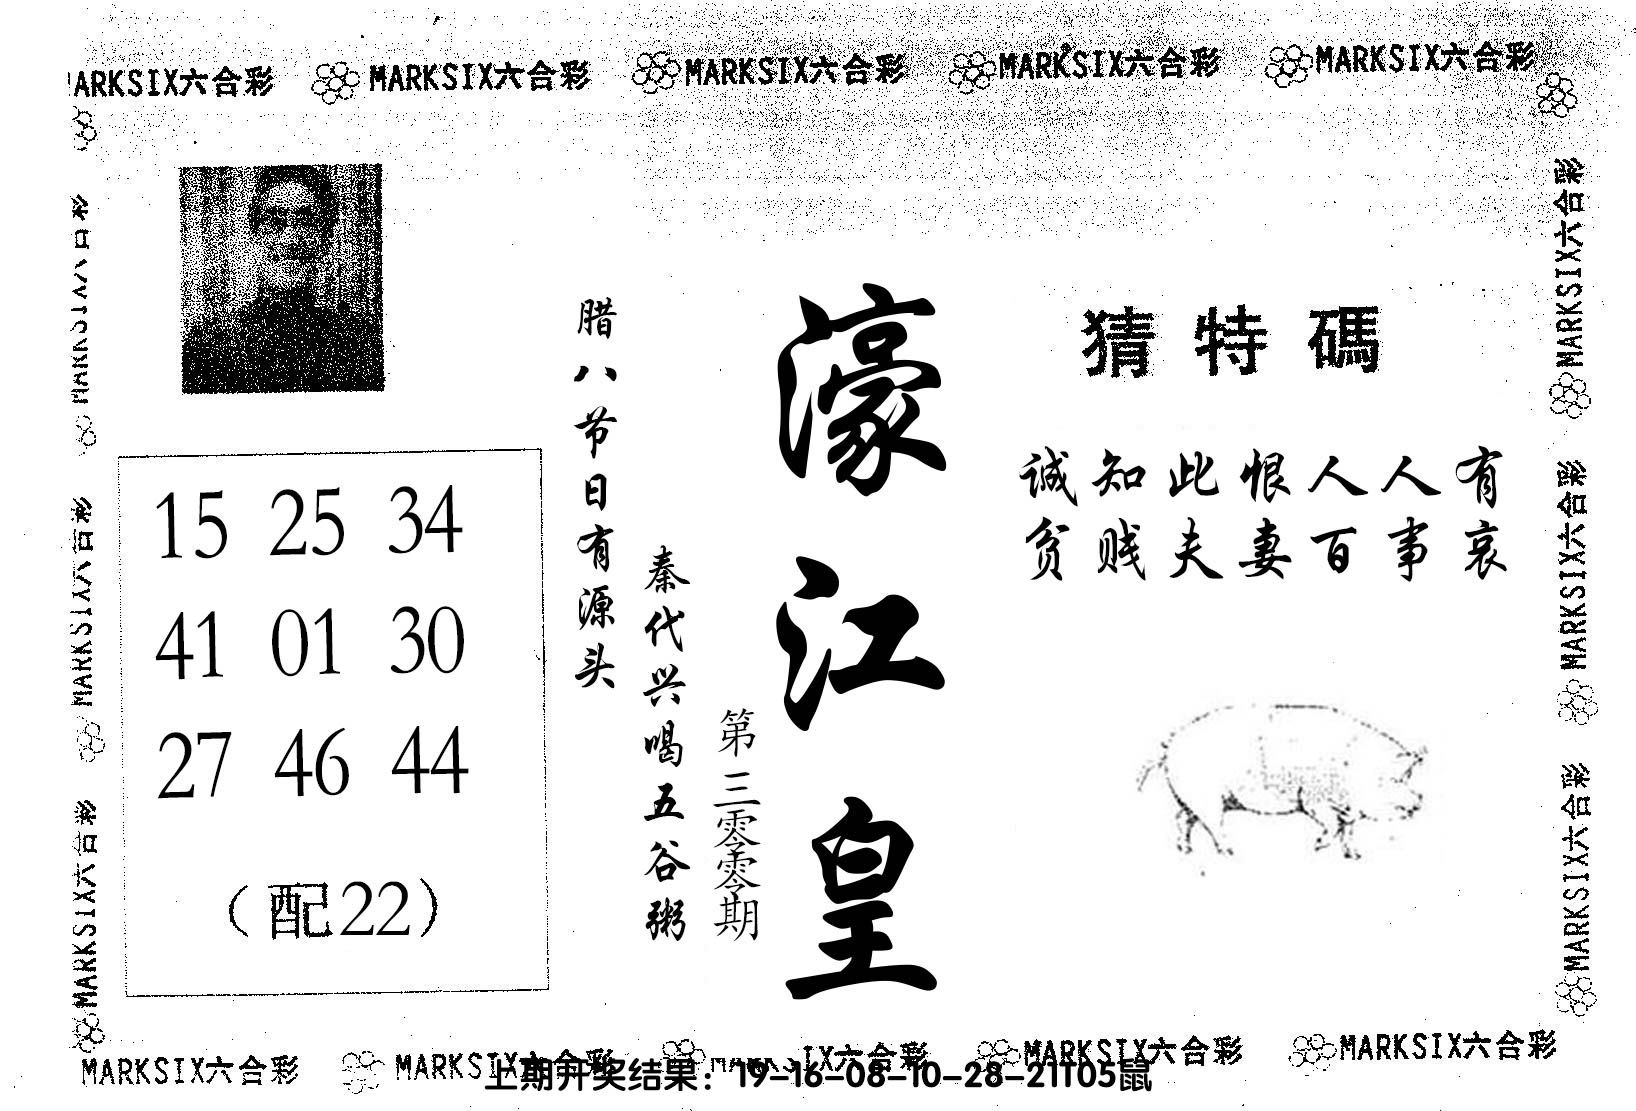 MARKSIX六合彩 MARKSIX六合彩 MARKSIX六合彩 MARKSIX六合彩
猜特碼
诚知此恨人人有
贫贱夫妻百事哀
濠江皇
第三零零期
腊八节日有源头
秦代兴喝五谷粥
15 25 34
41 01 30
27 46 44
（配22）
MARKSIX六合彩
MARKSIX六合彩
MARKSIX六合彩
MARKSIX六合彩
MARKSIX六合彩
MARKSIX六合彩 MARKSIX六合彩 MARKSIX六合彩 MARKSIX六合彩
上期开奖结果：19-16-08-10-28-21T05鼠